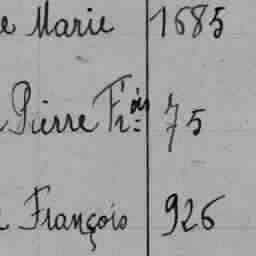 e Marie 1685
Pierre Fr.ois 75
François 926